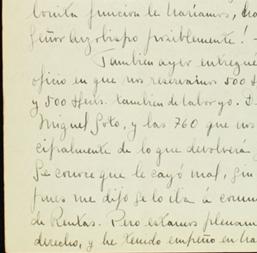 bonita función le haríamos,
Señor Arzobispo posiblemente! -
También ayer entregué
oficio en que nos reservamos 500 H
y 500 Hens. tambien de Laboryo.
Miguel Soto, y las 760 que nos
cipalmente de lo que devolverá
Se conoce que le cayó mal, sin
pues me dijo se lo iba á comun
de Rentas. Pero estamos plenam
derecho, y he tenido empeño en ha